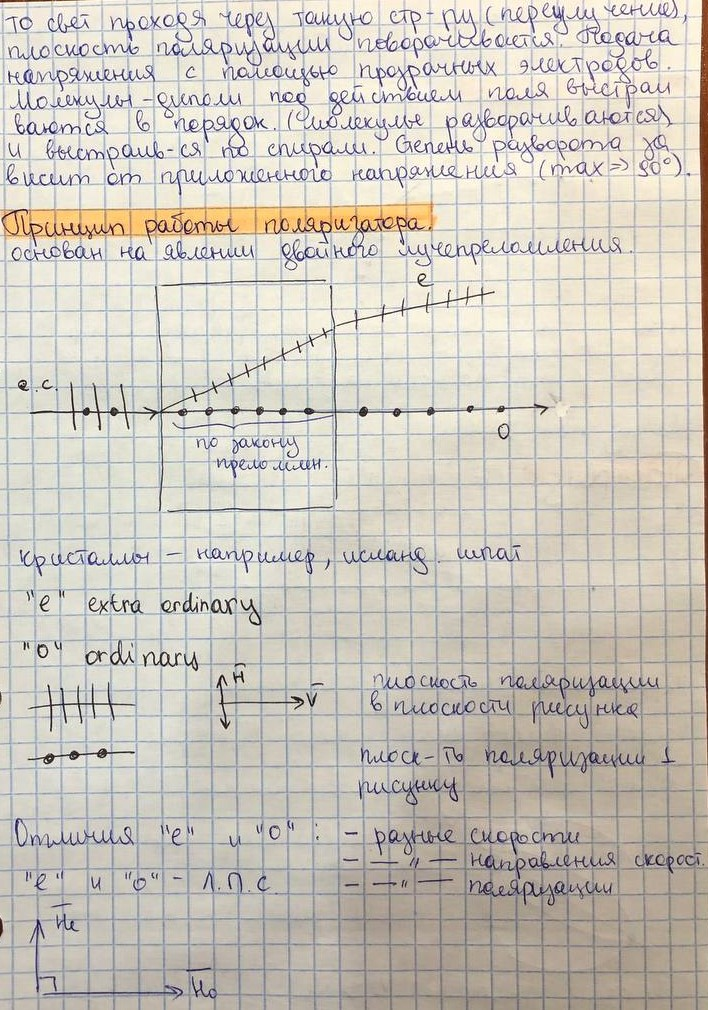 то свет проходя через такую стр-ру (переизлучение),
плоскость поляризации поворачивается. Подача
напряжения с помощью прозрачных электродов.
Молекулы-диполи под действием поля выстраи
ваются в порядок. (молекулы разворачиваются)
и выстраив-ся по спирали. Степень разворота за
висит от приложенного напряжения (max => 90°).
Принцип работы поляризатора.
основан на явлении двойного лучепреломления.
e
е.с.
по закону
преломлен.
o
кристаллы – например, исланд. шпат
"e" extra ordinary
"o" ordinary
H
V
плоскость поляризации
в плоскости рисунка
плоск-ть поляризации ⊥
рисунку
Отличия "e" и "o" : – разные скорости
– — " — направления скорост.
"e" и "o" - Л.П.С. – — " — поляризации
He
Ho